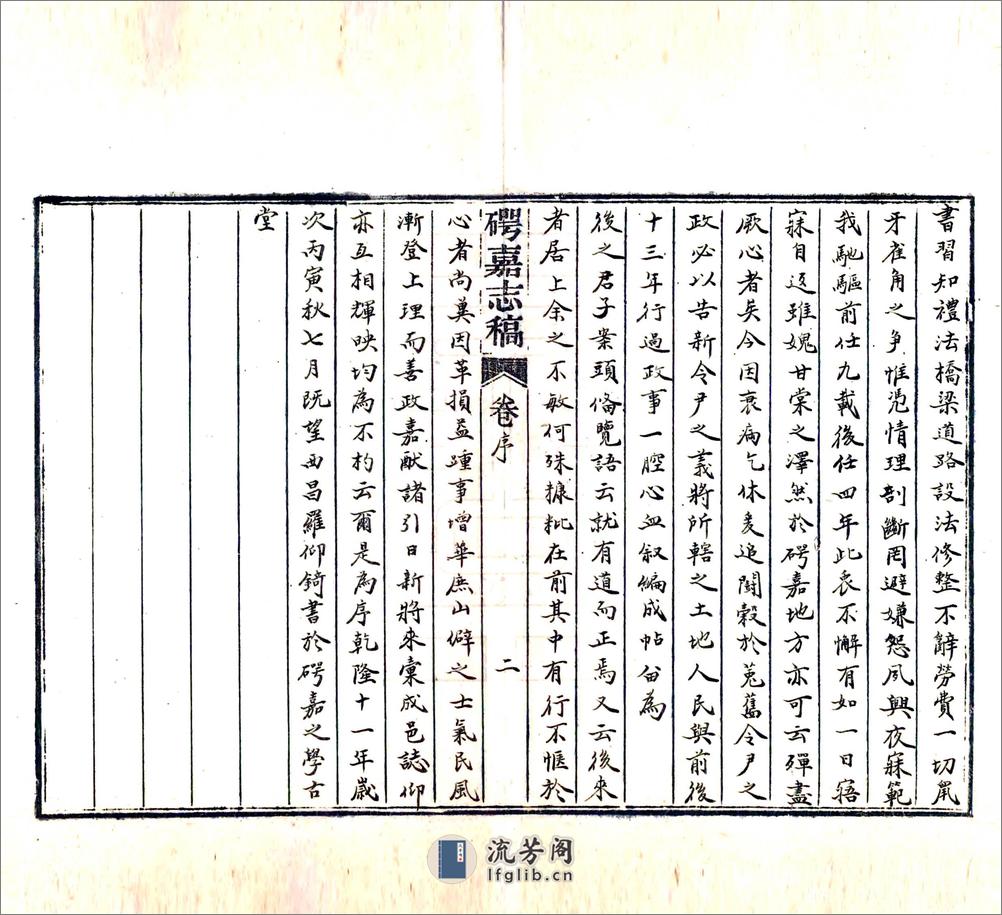 書習知禮法橋梁道路設法修整不辭勞費一切鼠
牙雀角之爭惟憑情理剖斷罔避嫌怨夙興夜寐範
我馳驅前任九載後任四年此衷不懈有如一日寤
寐自返雖媿甘棠之澤然於碍嘉地方亦可云殫盡
厥心者矣今因衰病乞休爰追鬪穀於菟舊令尹之
政必以告新令尹之義將所轄之土地人民與前後
十三年行過政事一腔心血叙編成帖留為
後之君子案頭偹覽語云就有道而正焉又云後來
者居上余之不敏何殊糠粃在前其中有行不愜於
碍嘉志稿
卷序
二
心者尚冀因革損益踵事增華庶山僻之士氣民風
漸登上理而善政嘉猷諸引日新將來彙成邑誌仰
亦互相輝映均為不朽云爾是為序乾隆十一年歲
次丙寅秋七月既望西昌羅仰錡書於碍嘉之學古
堂
流芳阁
lfglib.cn